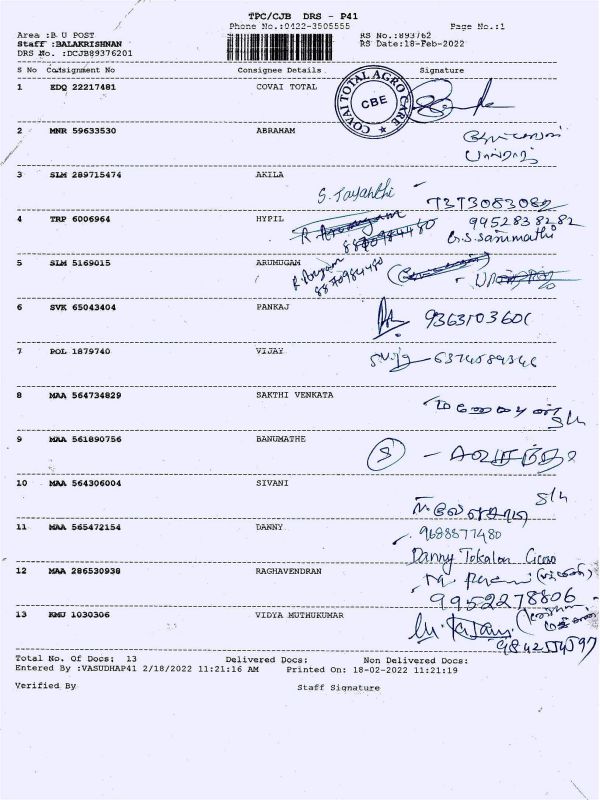 TPC/CJB DRS - P41
Phone No.:0422-3505555 Page No.:1
Area :B U POST RS No.:893762
Staff :BALAKRISHNAN RS Date:18-Feb-2022
DRS No. :DCJB89376201
S No Consignment No Consignee Details Signature
1 EDQ 22217481 COVAI TOTAL
COVAI TOTAL AGRO CARE
CBE
2 MNR 59633530 ABRAHAM
3 SLM 289715474 AKILA
S. Jayanthi
7373083082
4 TRP 6006964 HYPIL
9952838282
G.S. Sanmathi
8870984480
5 SLM 5169015 ARUMUGAM
8870984480
6 SVK 65043404 PANKAJ
7 POL 1879740 VIJAY
8 MAA 564734829 SAKTHI VENKATA
9 MAA 561890756 BANUMATHE
10 MAA 564306004 SIVANI
11 MAA 565472154 DANNY
9688877480
Danny Tokalon
12 MAA 286530938 RAGHAVENDRAN
9952278806
13 KMU 1030306 VIDYA MUTHUKUMAR
Total No. Of Docs: 13 Delivered Docs: Non Delivered Docs:
Entered By :VASUDHAP41 2/18/2022 11:21:16 AM Printed On: 18-02-2022 11:21:19
Verified By Staff Signature